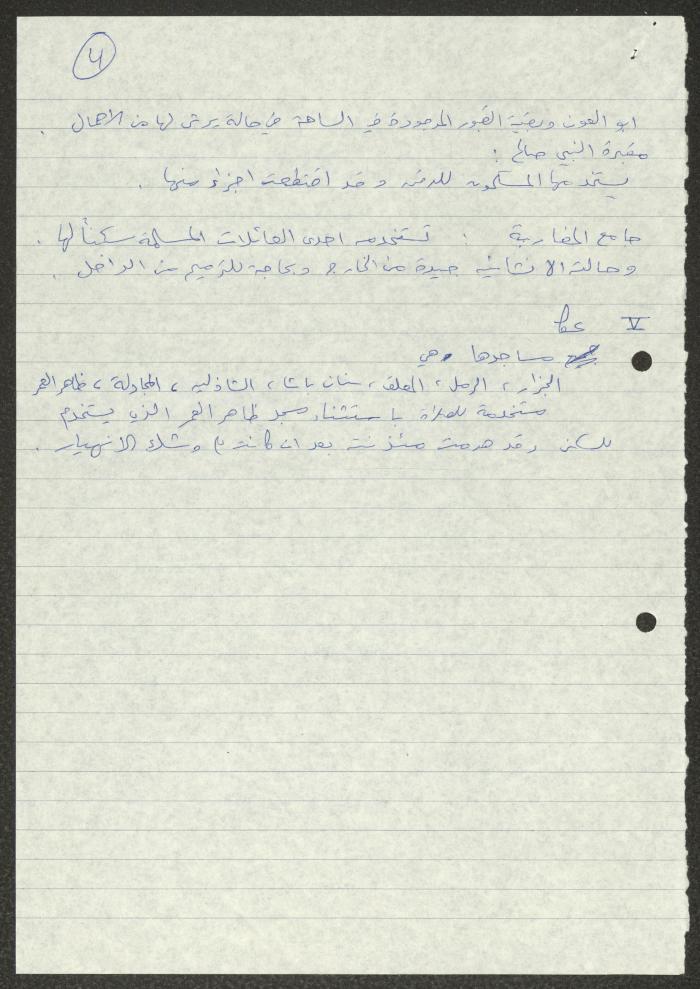 4
ابو العون وبقية القبور الموجودة في الساحة في حالة يرثى لها من الاهمال .
مقبرة النبي صالح :
يستخدمها المسلمون للدفن و قد اقتطعت اجزاء منها .
جامع المغاربة : تستخدمه احدى العائلات المسلمة سكناً لها .
وحالته الانشائية جيدة من الخارج وبحاجة للترميم من الداخل .
V عكا
مساجدها وهي
الجزار ، الرمل ، المعلق ، سنان باشا ، الشاذلية ، المجادلة ، ظاهر العمر
مستخدمة للصلاة باستثناء مسجد ظاهر العمر الذي يستخدم
للسكن وقد هدمت مئذنته بعد ان كانت وشك الانهيار .